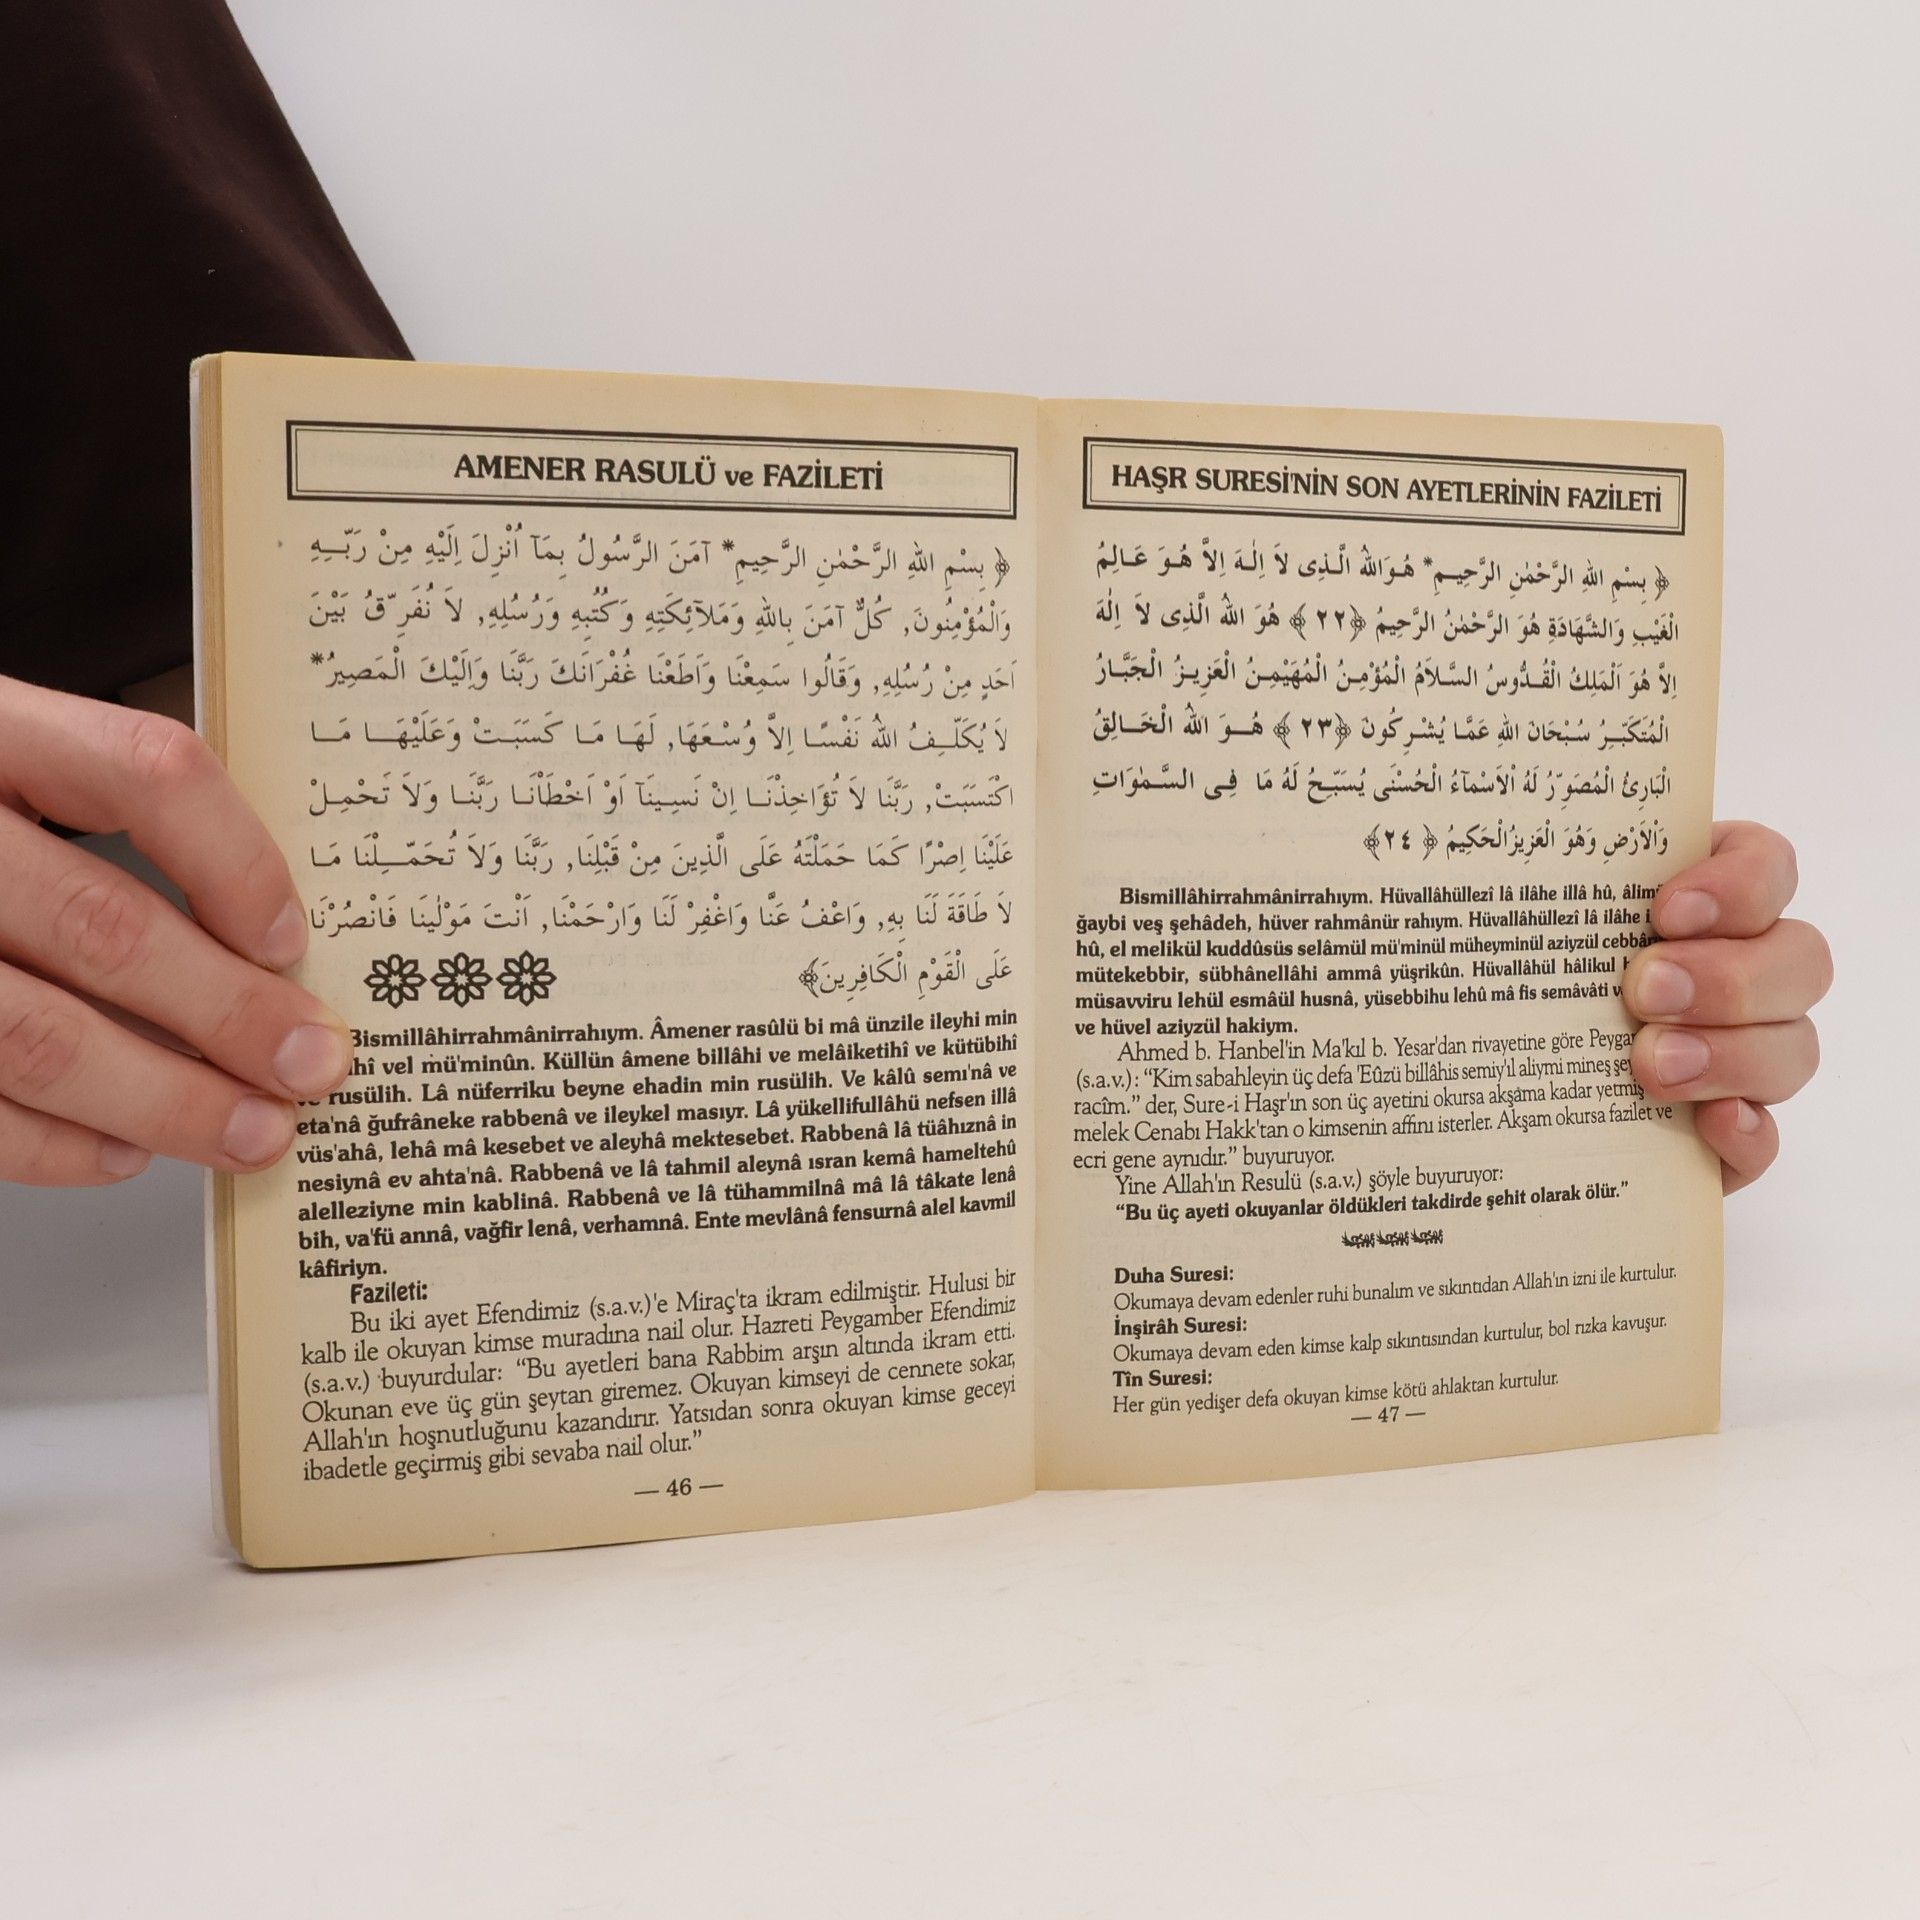 AMENER RASULÜ ve FAZİLETİ
﴿ بِسْمِ اللهِ الرَّحْمٰنِ الرَّحِيمِ * آمَنَ الرَّسُولُ بِمَآ اُنْزِلَ اِلَيْهِ مِنْ رَبِّهِ
وَالْمُؤْمِنُونَ, كُلٌّ آمَنَ بِاللهِ وَمَلآئِكَتِهِ وَكُتُبِهِ وَرُسُلِهِ, لاَ نُفَرِّقُ بَيْنَ
اَحَدٍ مِنْ رُسُلِهِ, وَقَالُوا سَمِعْنَا وَاَطَعْنَا غُفْرَانَكَ رَبَّنَا وَاِلَيْكَ الْمَصِيرُ *
لاَ يُكَلِّفُ اللهُ نَفْسًا اِلاَّ وُسْعَهَا, لَهَا مَا كَسَبَتْ وَعَلَيْهَا مَا
اكْتَسَبَتْ, رَبَّنَا لاَ تُؤَاخِذْنَا اِنْ نَسِينَآ اَوْ اَخْطَاْنَا رَبَّنَا وَلاَ تَحْمِلْ
عَلَيْنَا اِصْرًا كَمَا حَمَلْتَهُ عَلَى الَّذِينَ مِنْ قَبْلِنَا, رَبَّنَا وَلاَ تُحَمِّلْنَا مَا
لاَ طَاقَةَ لَنَا بِهِ, وَاعْفُ عَنَّا وَاغْفِرْ لَنَا وَارْحَمْنَا, اَنْتَ مَوْلٰينَا فَانْصُرْنَا
عَلَى الْقَوْمِ الْكَافِرِينَ ﴾
Bismillâhirrahmânirrahıym. Âmener rasûlü bi mâ ünzile ileyhi min
hî vel mü'minûn. Küllün âmene billâhi ve melâiketihî ve kütübihî
ve rusülih. Lâ nüferriku beyne ehadin min rusülih. Ve kâlû semı'nâ ve
eta'nâ ğufrâneke rabbenâ ve ileykel masıyr. Lâ yükellifullâhü nefsen illâ
vüs'ahâ, lehâ mâ kesebet ve aleyhâ mektesebet. Rabbenâ lâ tüâhıznâ in
nesiynâ ev ahta'nâ. Rabbenâ ve lâ tahmil aleynâ ısran kemâ hameltehû
alelleziyne min kablinâ. Rabbenâ ve lâ tühammilnâ mâ lâ tâkate lenâ
bih, va'fü annâ, vağfir lenâ, verhamnâ. Ente mevlânâ fensurnâ alel kavmil
kâfiriyn.
Fazileti:
Bu iki ayet Efendimiz (s.a.v.)'e Miraç'ta ikram edilmiştir. Hulusi bir
kalb ile okuyan kimse muradına nail olur. Hazreti Peygamber Efendimiz
(s.a.v.) buyurdular: “Bu ayetleri bana Rabbim arşın altında ikram etti.
Okunan eve üç gün şeytan giremez. Okuyan kimseyi de cennete sokar,
Allah'ın hoşnutluğunu kazandırır. Yatsıdan sonra okuyan kimse geceyi
ibadetle geçirmiş gibi sevaba nail olur.”
— 46 —
HAŞR SURESİ'NİN SON AYETLERİNİN FAZİLETİ
﴿ بِسْمِ اللهِ الرَّحْمٰنِ الرَّحِيمِ * هُوَاللهُ الَّذِى لاَ اِلٰهَ اِلاَّ هُوَ عَالِمُ
الْغَيْبِ وَالشَّهَادَةِ هُوَ الرَّحْمٰنُ الرَّحِيمُ ﴿٢٢﴾ هُوَ اللهُ الَّذِى لاَ اِلٰهَ
اِلاَّ هُوَ اَلْمَلِكُ الْقُدُّوسُ السَّلاَمُ الْمُؤْمِنُ الْمُهَيْمِنُ الْعَزِيزُ الْجَبَّارُ
الْمُتَكَبِّرُ سُبْحَانَ اللهِ عَمَّا يُشْرِكُونَ ﴿٢٣﴾ هُوَ اللهُ الْخَالِقُ
الْبَارِئُ الْمُصَوِّرُ لَهُ اْلاَسْمآءُ الْحُسْنَى يُسَبِّحُ لَهُ مَا فِى السَّمٰوَاتِ
وَاْلاَرْضِ وَهُوَ الْعَزِيزُالْحَكِيمُ ﴿٢٤﴾
Bismillâhirrahmânirrahıym. Hüvallâhüllezî lâ ilâhe illâ hû, âlimü
ğaybi veş şehâdeh, hüver rahmânür rahıym. Hüvallâhüllezî lâ ilâhe i
hû, el melikül kuddûsüs selâmül mü'minül müheyminül aziyzül cebbâru
mütekebbir, sübhânellâhi ammâ yüşrikûn. Hüvallâhül hâlikul
müsavviru lehül esmâül husnâ, yüsebbihu lehû mâ fis semâvâti
ve hüvel aziyzül hakiym.
Ahmed b. Hanbel'in Ma'kıl b. Yesar'dan rivayetine göre Peyga
(s.a.v.): “Kim sabahleyin üç defa 'Eûzü billâhis semiy'il aliymi mineş şey
racîm.” der, Sure-i Haşr'ın son üç ayetini okursa akşama kadar yetmiş
melek Cenabı Hakk'tan o kimsenin affını isterler. Akşam okursa fazilet ve
ecri gene aynıdır.” buyuruyor.
Yine Allah'ın Resulü (s.a.v.) şöyle buyuruyor:
“Bu üç ayeti okuyanlar öldükleri takdirde şehit olarak ölür.”
Duha Suresi:
Okumaya devam edenler ruhi bunalım ve sıkıntıdan Allah'ın izni ile kurtulur.
İnşirâh Suresi:
Okumaya devam eden kimse kalp sıkıntısından kurtulur, bol rızka kavuşur.
Tîn Suresi:
Her gün yedişer defa okuyan kimse kötü ahlaktan kurtulur.
— 47 —